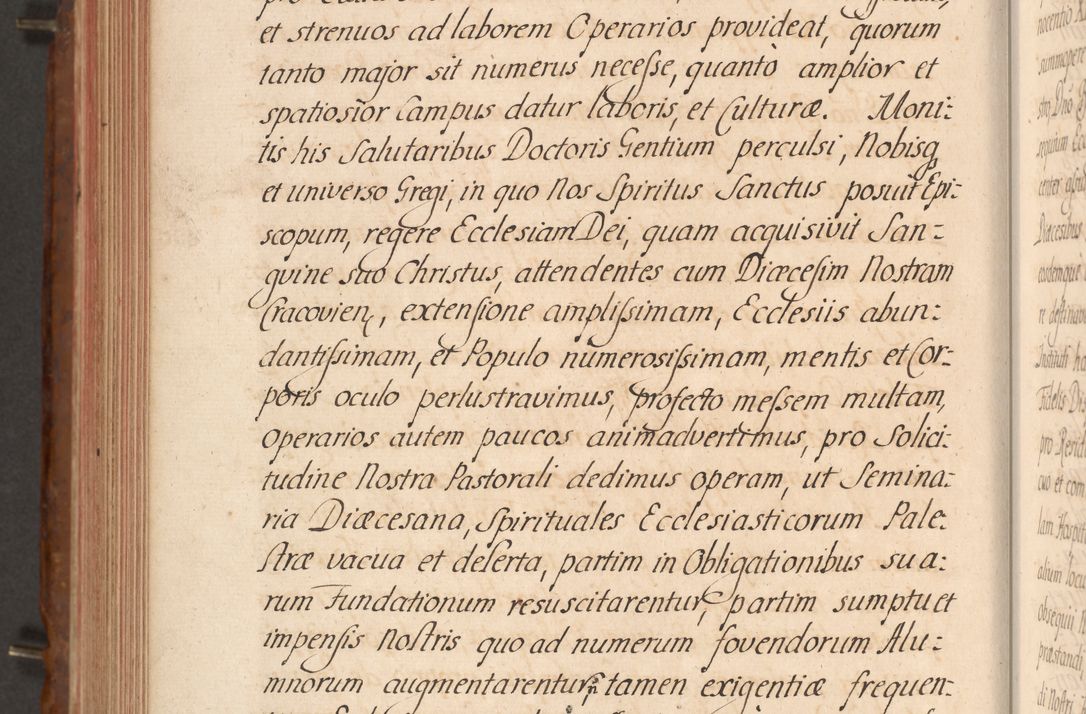 et strenuos ad laborem Operarios provideat, quorum
tanto major sit numerus necesse, quantò amplior et
spatiosior Campus datur laboris, et Culturæ. Moni:
tis his Salutaribus Doctoris Gentium perculsi, Nobisq
et universo Gregi, in quo Nos Spiritus Sanctus posuit Epi:
scopum, regere Ecclesiam Dei, quam acquisivit San:
gvine suo Christus, attendentes cum Diæcesim Nostram
Cracovien, extensione amplissimam, Ecclesiis abun:
dantissimam, et Populo numerosissimam, mentis et Cor:
poris oculo perlustravimus, profecto messem multam,
operarios autem paucos animadvertimus, pro Solici:
tudine Nostra Pastorali dedimus operam, ut Semina:
ria Diæcesana, Spirituales Ecclesiasticorum Pale:
stræ vacua et deserta, partim in Obligationibus sua:
rum Fundationum resuscitarentur, partim sumptu et
impensis Nostris quo ad numerum fovendorum Alu:
mnorum augmentarentur, tamen exigentiæ frequen:
nocentio
summopere
sim, Dno
Diæcesibus
eodemque
Instituti
Fidelis
pro
cuo et com
lam Hospit
alium loc
Obsequii
præstand
di Nostri